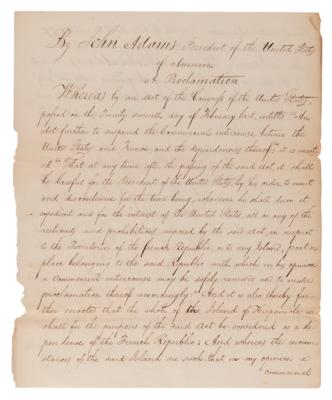 By John Adams President of the United States
of America
A Proclamation
Whereas by an Act of the Congress of the United States,
passed on the Twenty seventh day of February last, entitled "An
Act further to suspend the Commercial intercourse between the
United States and France and the dependences thereof" it is enact
ed "That at any time after the passing of the said Act, it shall
be lawful for the President of the United States, by his order to remit
and discontinue for the time being, whenever he shall deem it
expedient and for the interest of the United States all or any of the
restraints and prohibitions imposed by the said act, in respect
to the Territories of the French Republic, or to any Island, port or
place belonging to the said Republic with which in his opinion
a commercial intercourse may be safely renewed and to make
proclamation thereof accordingly" And it is also thereby fur
ther enacted that the whole of the Island of Hispaniola
shall for the purposes of the said Act be considered as a de
pendence of the French Republic: And whereas the circum
stances of the said Island are such that in my opinion a
commercial